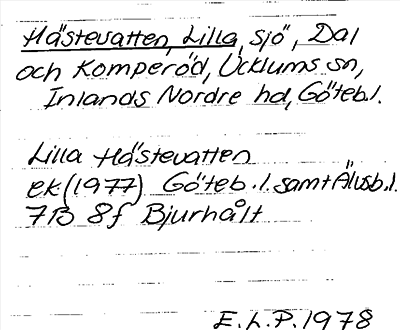 Hästevatten, Lilla, sjö, Dal
och Komperöd, Ucklums sn,
Inlands Nordre hd, Göteb.l.
Lilla Hästevatten
ek (1977) Göteb.l. samt Älvsb.l.
7B 8f Bjurhålt
E.L.P. 1978